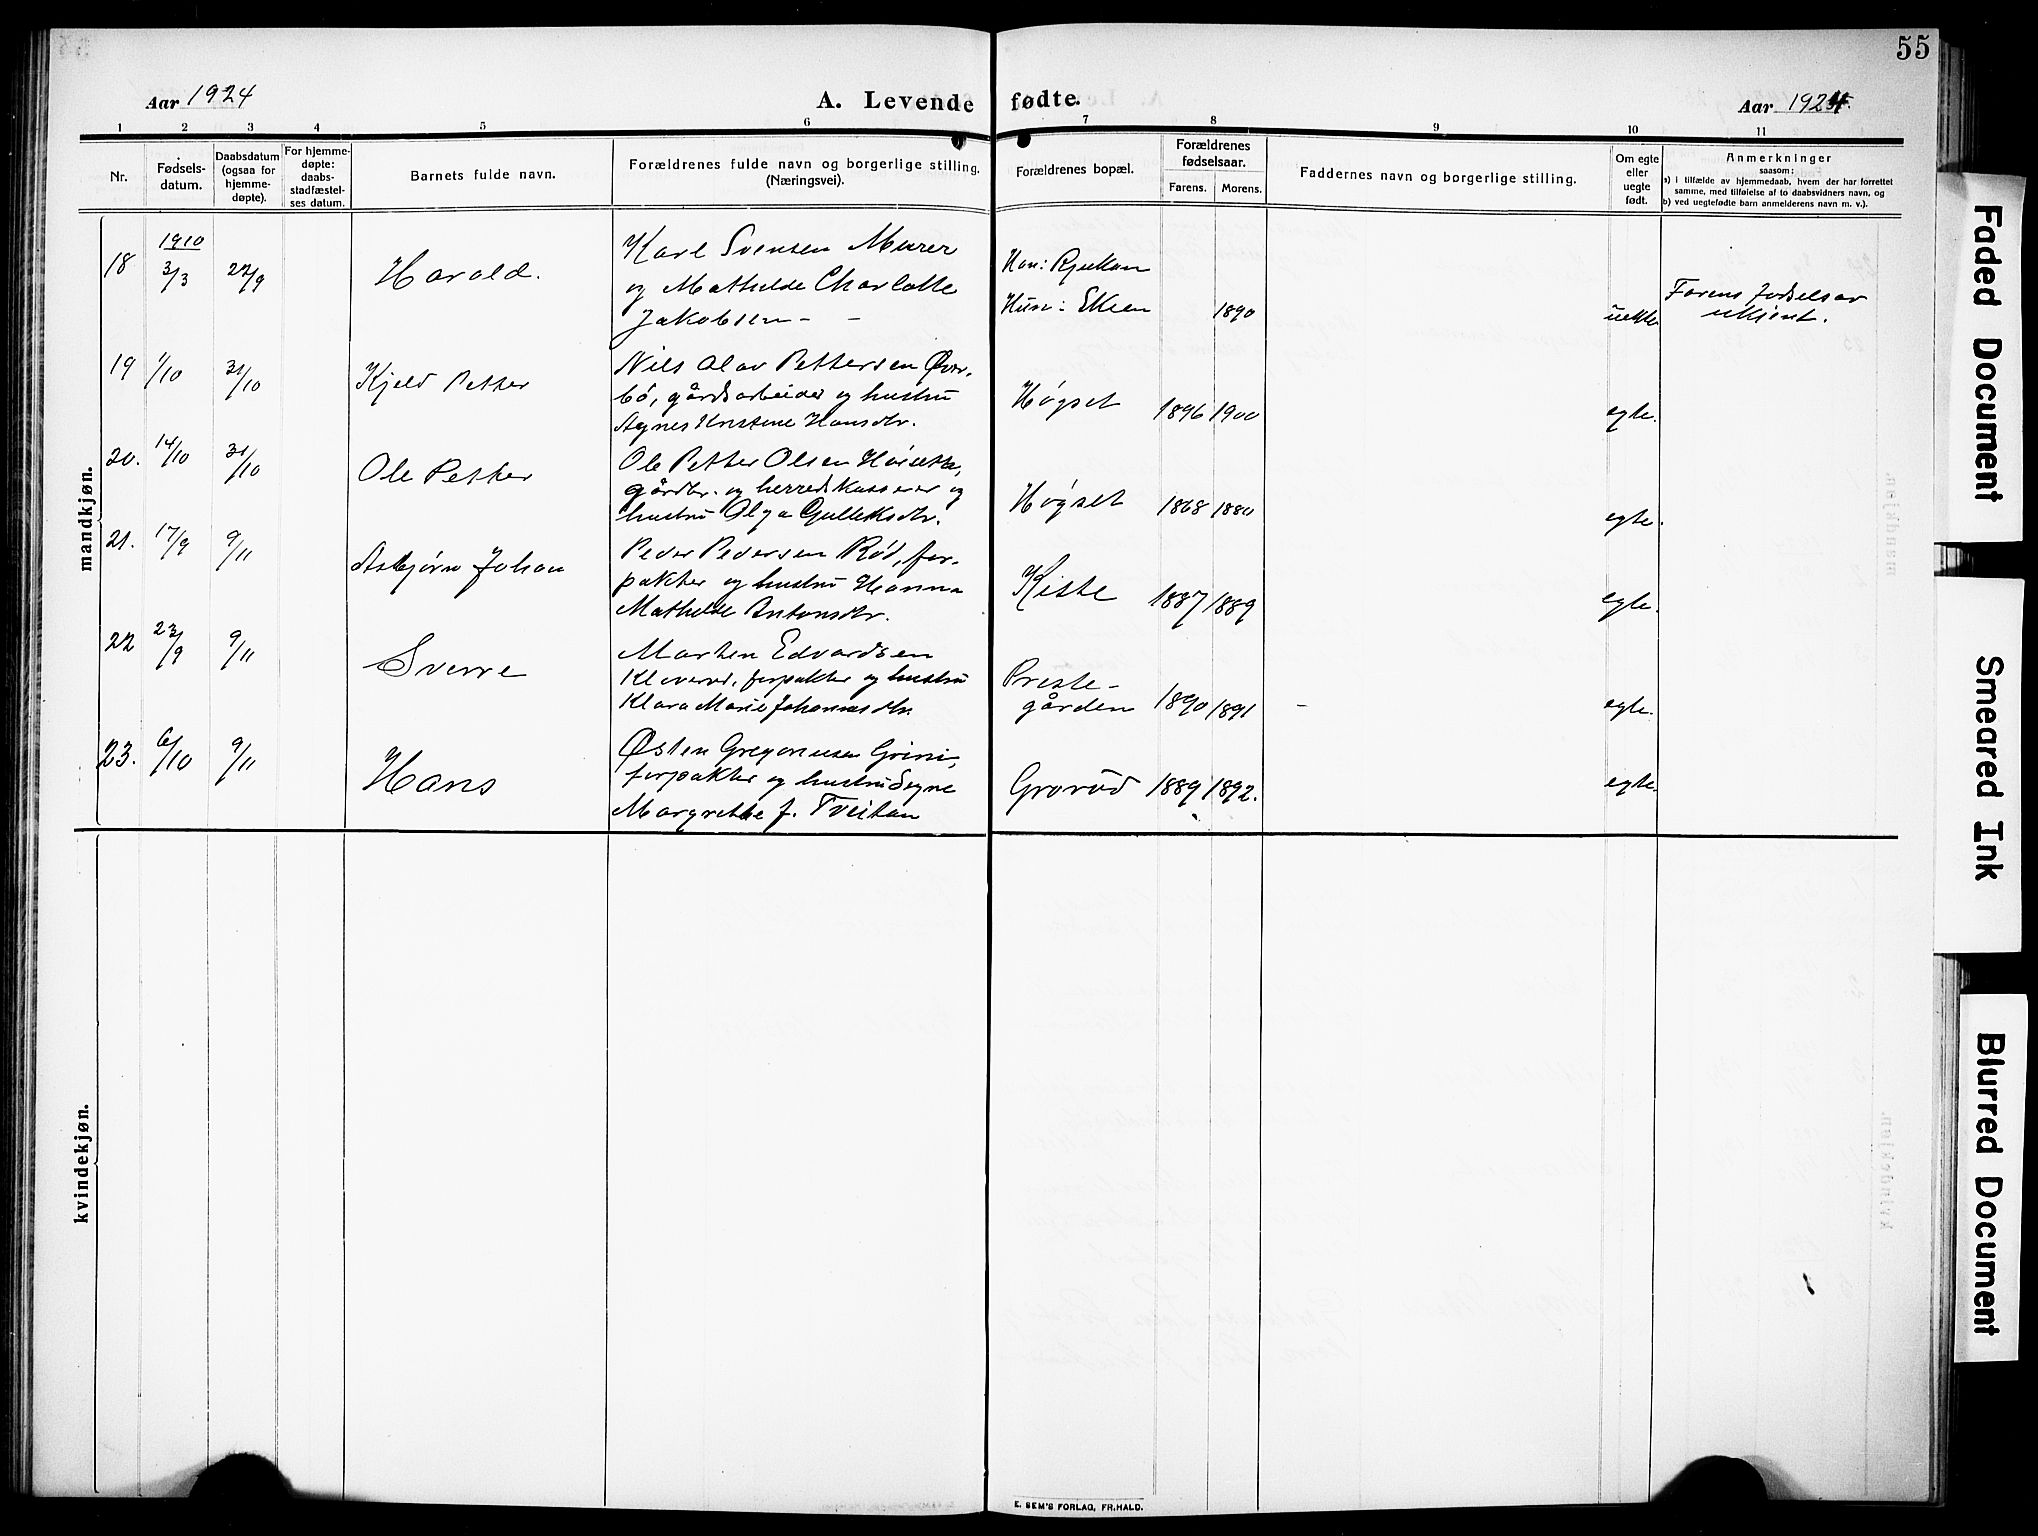 55
Aar 1924
A. Levende fødte.
Aar 1924.
1 2 3 4 5 6 7 8 9 10 11
Nr.
Fødsels-
datum.
Daabsdatum
(ogsaa for
hjemme-
døpte).
For hjemme-
døpte:
daabs-
stadfæstel-
ses datum.
Barnets fulde navn.
Forældrenes fulde navn og borgerlige stilling.
(Næringsvei).
Forældrenes bopæl.
Forældrenes
fødselsaar.
Farens. Morens.
Faddernes navn og borgerlige stilling.
Om egte
eller
uegte
født.
Anmerkninger
saasom:
a) i tilfælde av hjemmedaab, hvem der har forrettet
samme, med tilføielse af to daabsvidners navn, og
b) ved uegtefødte barn anmelderens navn m. v.).
mandkjøn.
18
1910
3/3
22/9
Harald.
Karl Svensen Murer
og Mathilde Charlotte
Jakobsen - -
Han: Rjukan
Hun: Eken
1890
uekte
Farens fødselsaar
ukjent.
19 1/10 31/10
Kjeld Petter
Nils Olav Pettersen Øver-
bö, gårdsarbeider og hustru
Agnes Kristene Hansdtr.
Høgset
1896 1900
egte.
20. 14/10 31/10
Ole Petter
Ole Petter Olsen
gårdbr. og herredskasserer og
hustru Olga Gulleksdtr.
Høgset
1868 1880
egte.
21. 17/9 9/11
Asbjørn Johan
Peder Pedersen Rød, for-
pakter og hustru Hanna
Mathilde Antonsdtr.
Kiste
1887 1889
egte.
22 23/9 9/11
Sverre
Marten Edvardsen
Kleverød, forpakter og hustru
Klara Marie Johannesdtr.
Preste-
gården
1890 1891
-
egte.
23. 6/10 9/11
Hans
Østen Gregoriusen Grini,
forpakter og hustru Signe
Margrethe f. Tveitan
Grorød
1889 1892.
egte.
kvindekjøn.
E. SEM'S FORLAG, FR.HALD.
Faded Document
Smeared Ink
Blurred Document